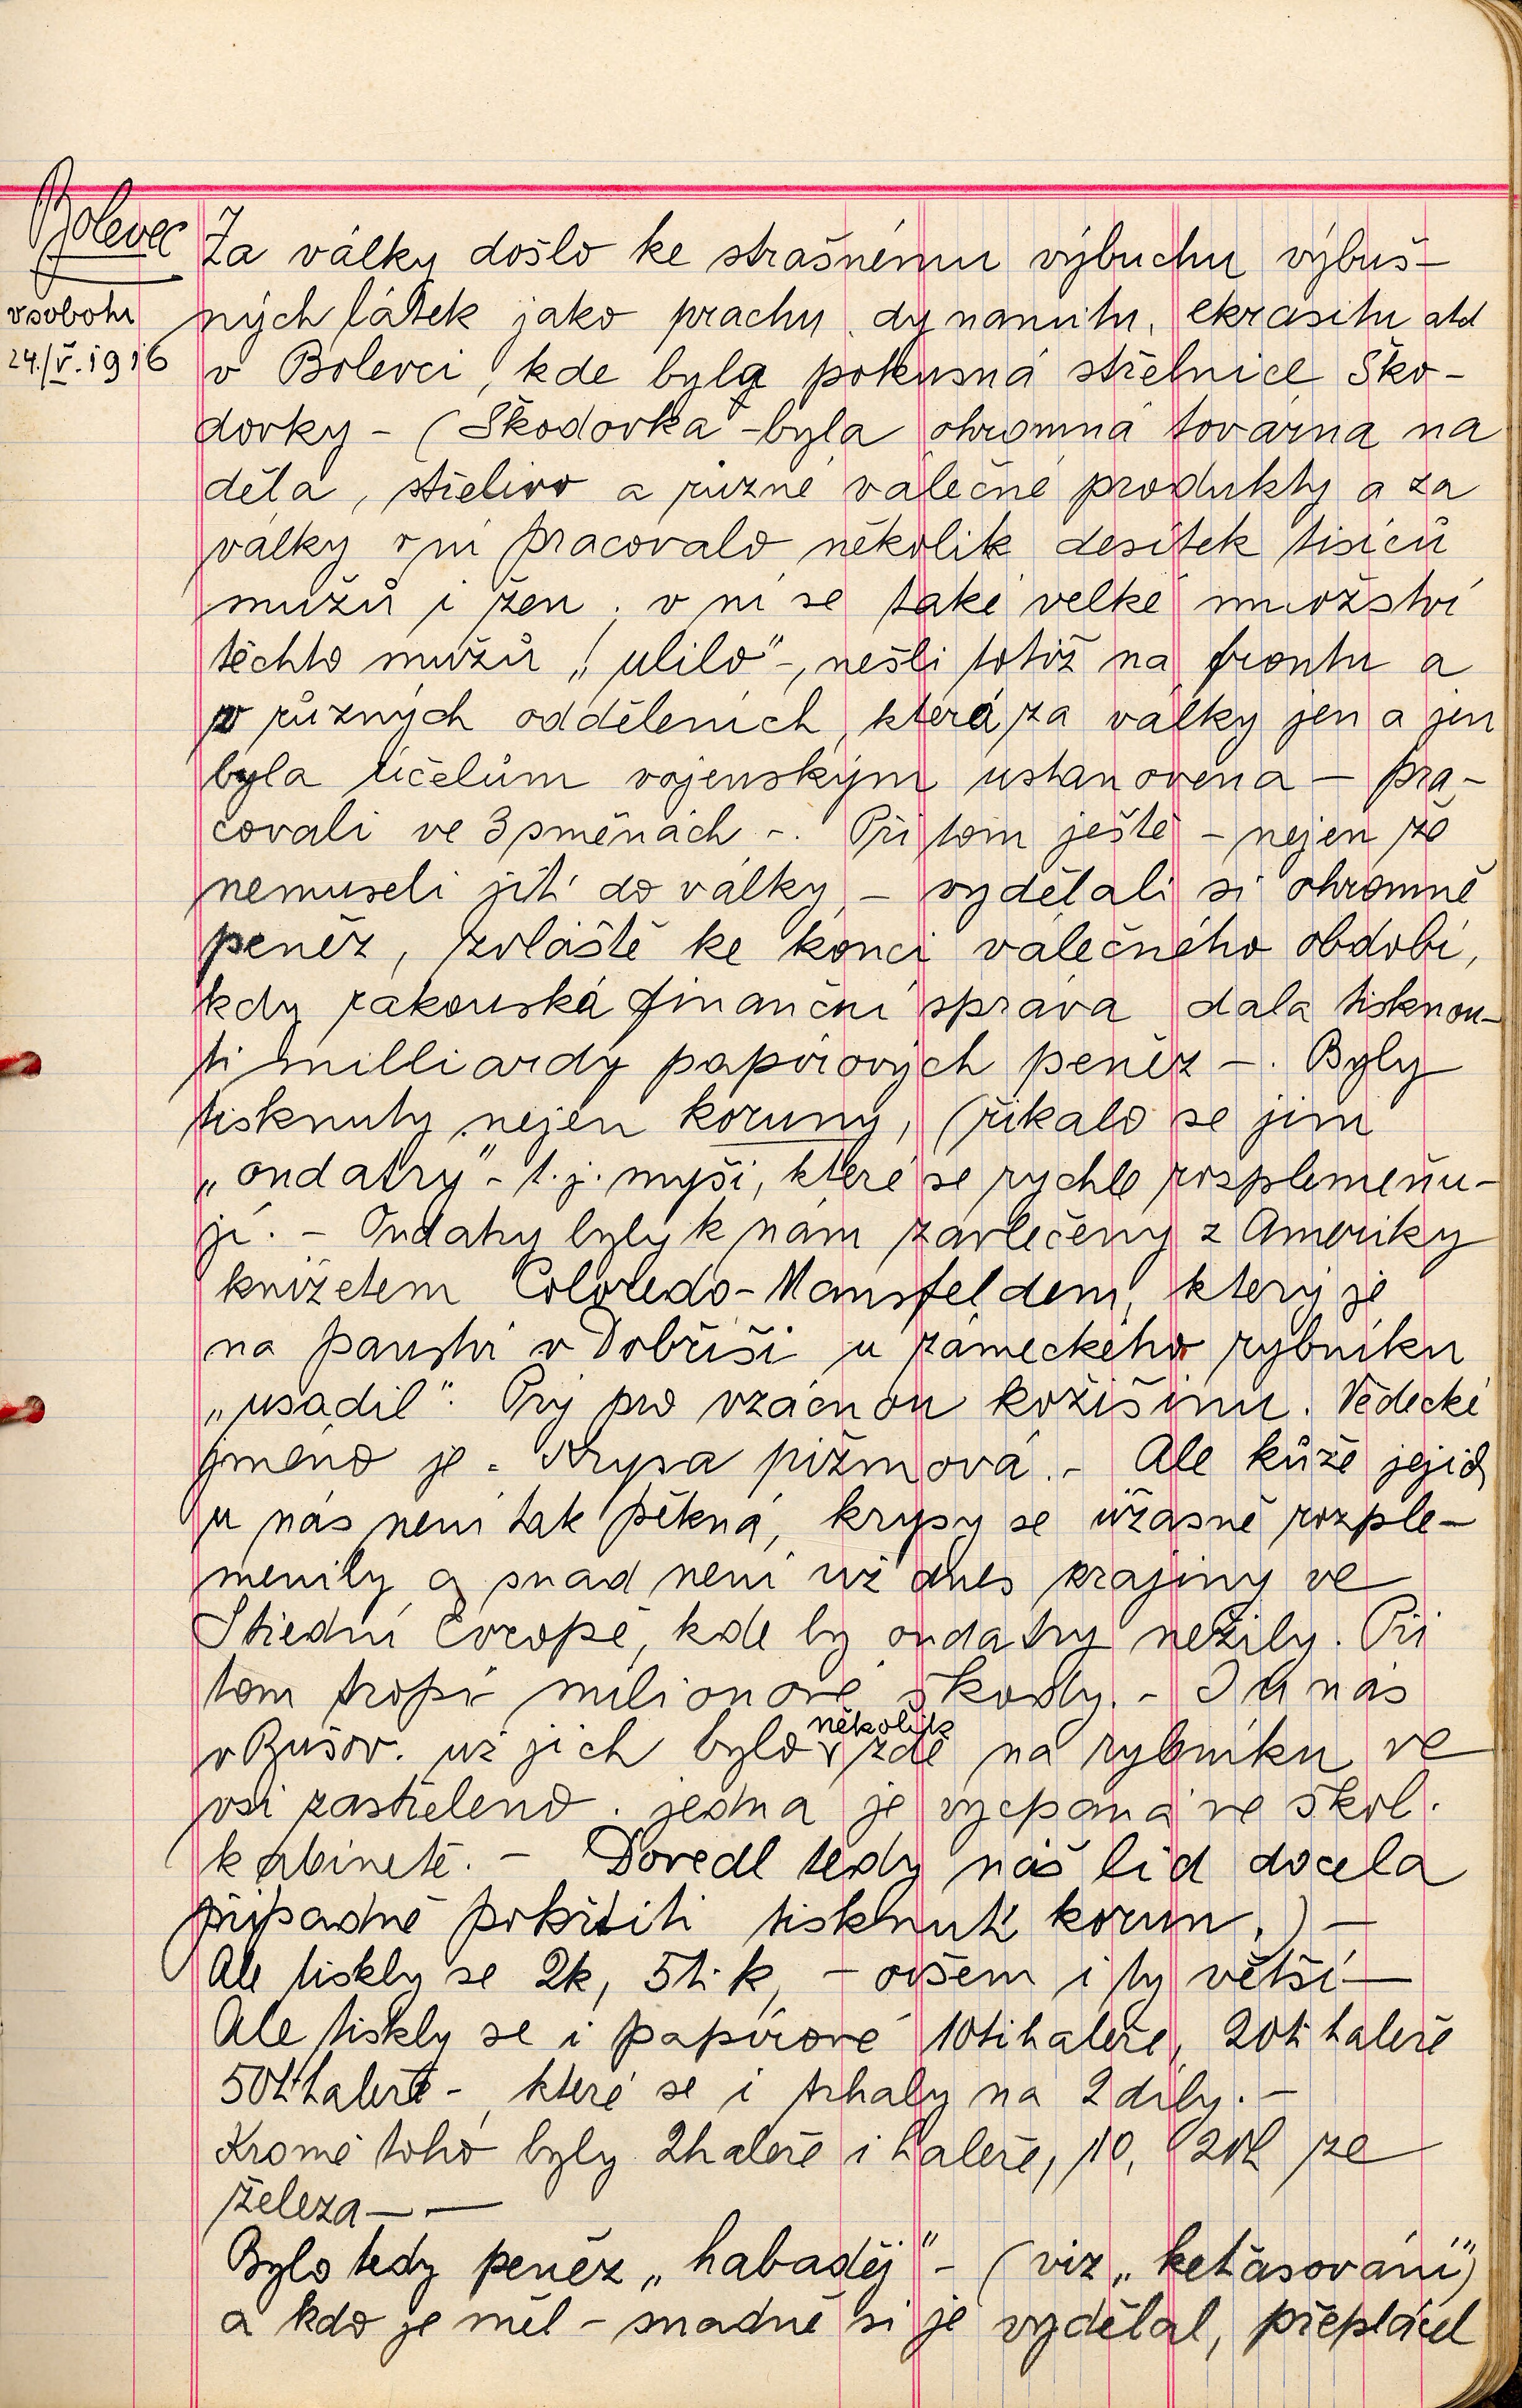 Bolevec
v sobotu
24./V. 1916
Za války došlo ke strašnému výbuchu výbuš-
ných látek jako prachu, dynamitu, ekrasitu atd
v Bolevci, kde byla pokusná střelnice Ško-
dovky - (Škodovka - byla ohromná továrna na
děla, střelivo a různé válečné produkty a za
války v ní pracovalo několik desítek tisíců
mužů i žen, v ní se také velké množství
těchto mužů „ulilo" -, nešli totiž na frontu a
v různých odděleních, která za války jen a jen
byla účelům vojenským ustanovena - pra-
covali ve 3 směnách -. Při tom ještě - nejen že
nemuseli jíti do války, - vydělali si ohromně
peněz, zvláště ke konci válečného období,
kdy rakouská finanční správa dala tisknou-
ti milliardy papírových peněz -. Byly
tisknuty nejen koruny, (říkalo se jim
„ondatry" - t.j. myši, které se rychle rozplemeňu-
jí. - Ondatry byly k nám zavlečeny z Ameriky
knížetem Coloredo-Mansfeldem, který je
na panství v Dobříši u zámeckého rybníku
„usadil". Prý pro vzácnou kožišinu. Vědecké
jméno je - Krysa pižmová. - Ale kůže jejich
u nás není tak pěkná, krysy se úžasně rozple-
menily a snad není už dnes krajiny ve
Střední Evropě, kde by ondatry nežily. Při
tom tropí milionové škody. - I u nás
v Bušov. už jich bylo několik zde na rybníku ve
vsi zastřeleno. jedna je vycpaná ve škol.
kabinetě. - Dovedl tedy náš lid docela
případně pokřtíti tisknutí korun.) -
Ale tiskly se 2k, 5ti k, - ovšem i ty větší -
Ale tiskly se i papírové 10ti haléře, 20ti haléře
50ti haléře -, které se i trhaly na 2 díly. -
Kromě toho byly 2haléře i haléře, 10, 20h ze
železa - -
Bylo tedy peněz „habaděj" - (viz „keťasování")
a kdo je měl - snadně si je vydělal, přeplácel